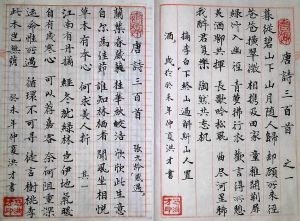 唐詩三百首 之一
暮從碧山下山月隨人歸卻顧所來徑
蒼蒼橫翠微相攜及田家童稚開荊扉
綠竹入幽徑青蘿拂行衣歡言得所憩
美酒聊共揮長歌吟松風曲盡河星稀
我醉君復樂陶然共忘機
摘李白下終山過斛斯山人置
酒 歲於癸未年仲夏洪才書
唐詩三百首 張九齡感遇
蘭葉春葳蕤桂華秋皎潔欣欣此生意
自爾為佳節誰知林棲者聞風坐相悅
草木有本心何求美人折 其
江南有丹橘經冬猶綠林豈伊地氣暖
自有歲寒心可以薦嘉客奈何阻重深
運命惟所遇循環不可尋徒言樹桃李
此木豈無陰 癸未年仲夏洪才書